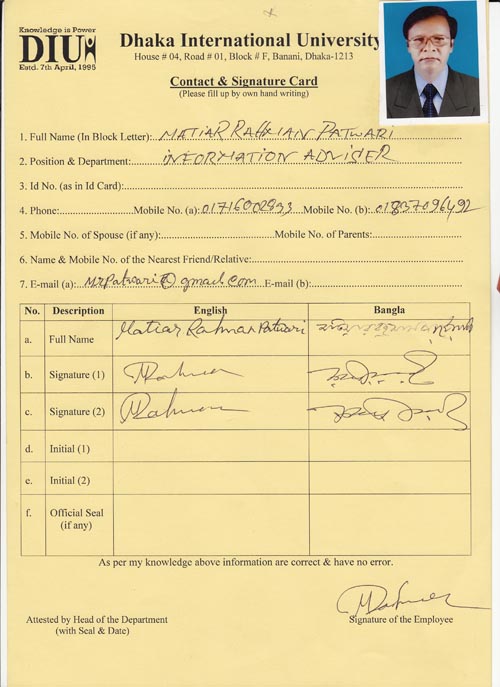 Knowledge is Power
DIU
Estd. 7th April, 1995
Dhaka International University
House # 04, Road # 01, Block # F, Banani, Dhaka-1213
Contact & Signature Card
(Please fill up by own hand writing)
1. Full Name (In Block Letter): MATIAR RAHMAN PATWARI
2. Position & Department: INFORMATION ADVISER
3. Id No. (as in Id Card):
4. Phone: Mobile No. (a): 01716002893 Mobile No. (b): 01837096492
5. Mobile No. of Spouse (if any): Mobile No. of Parents:
6. Name & Mobile No. of the Nearest Friend/Relative:
7. E-mail (a): MrPatwari@gmail.com E-mail (b):
No. Description English Bangla
a. Full Name Matiar Rahman Patwari
b. Signature (1) MRahman
c. Signature (2) MRahman
d. Initial (1)
e. Initial (2)
f. Official Seal
(if any)
As per my knowledge above information are correct & have no error.
MRahman
Attested by Head of the Department Signature of the Employee
(with Seal & Date)